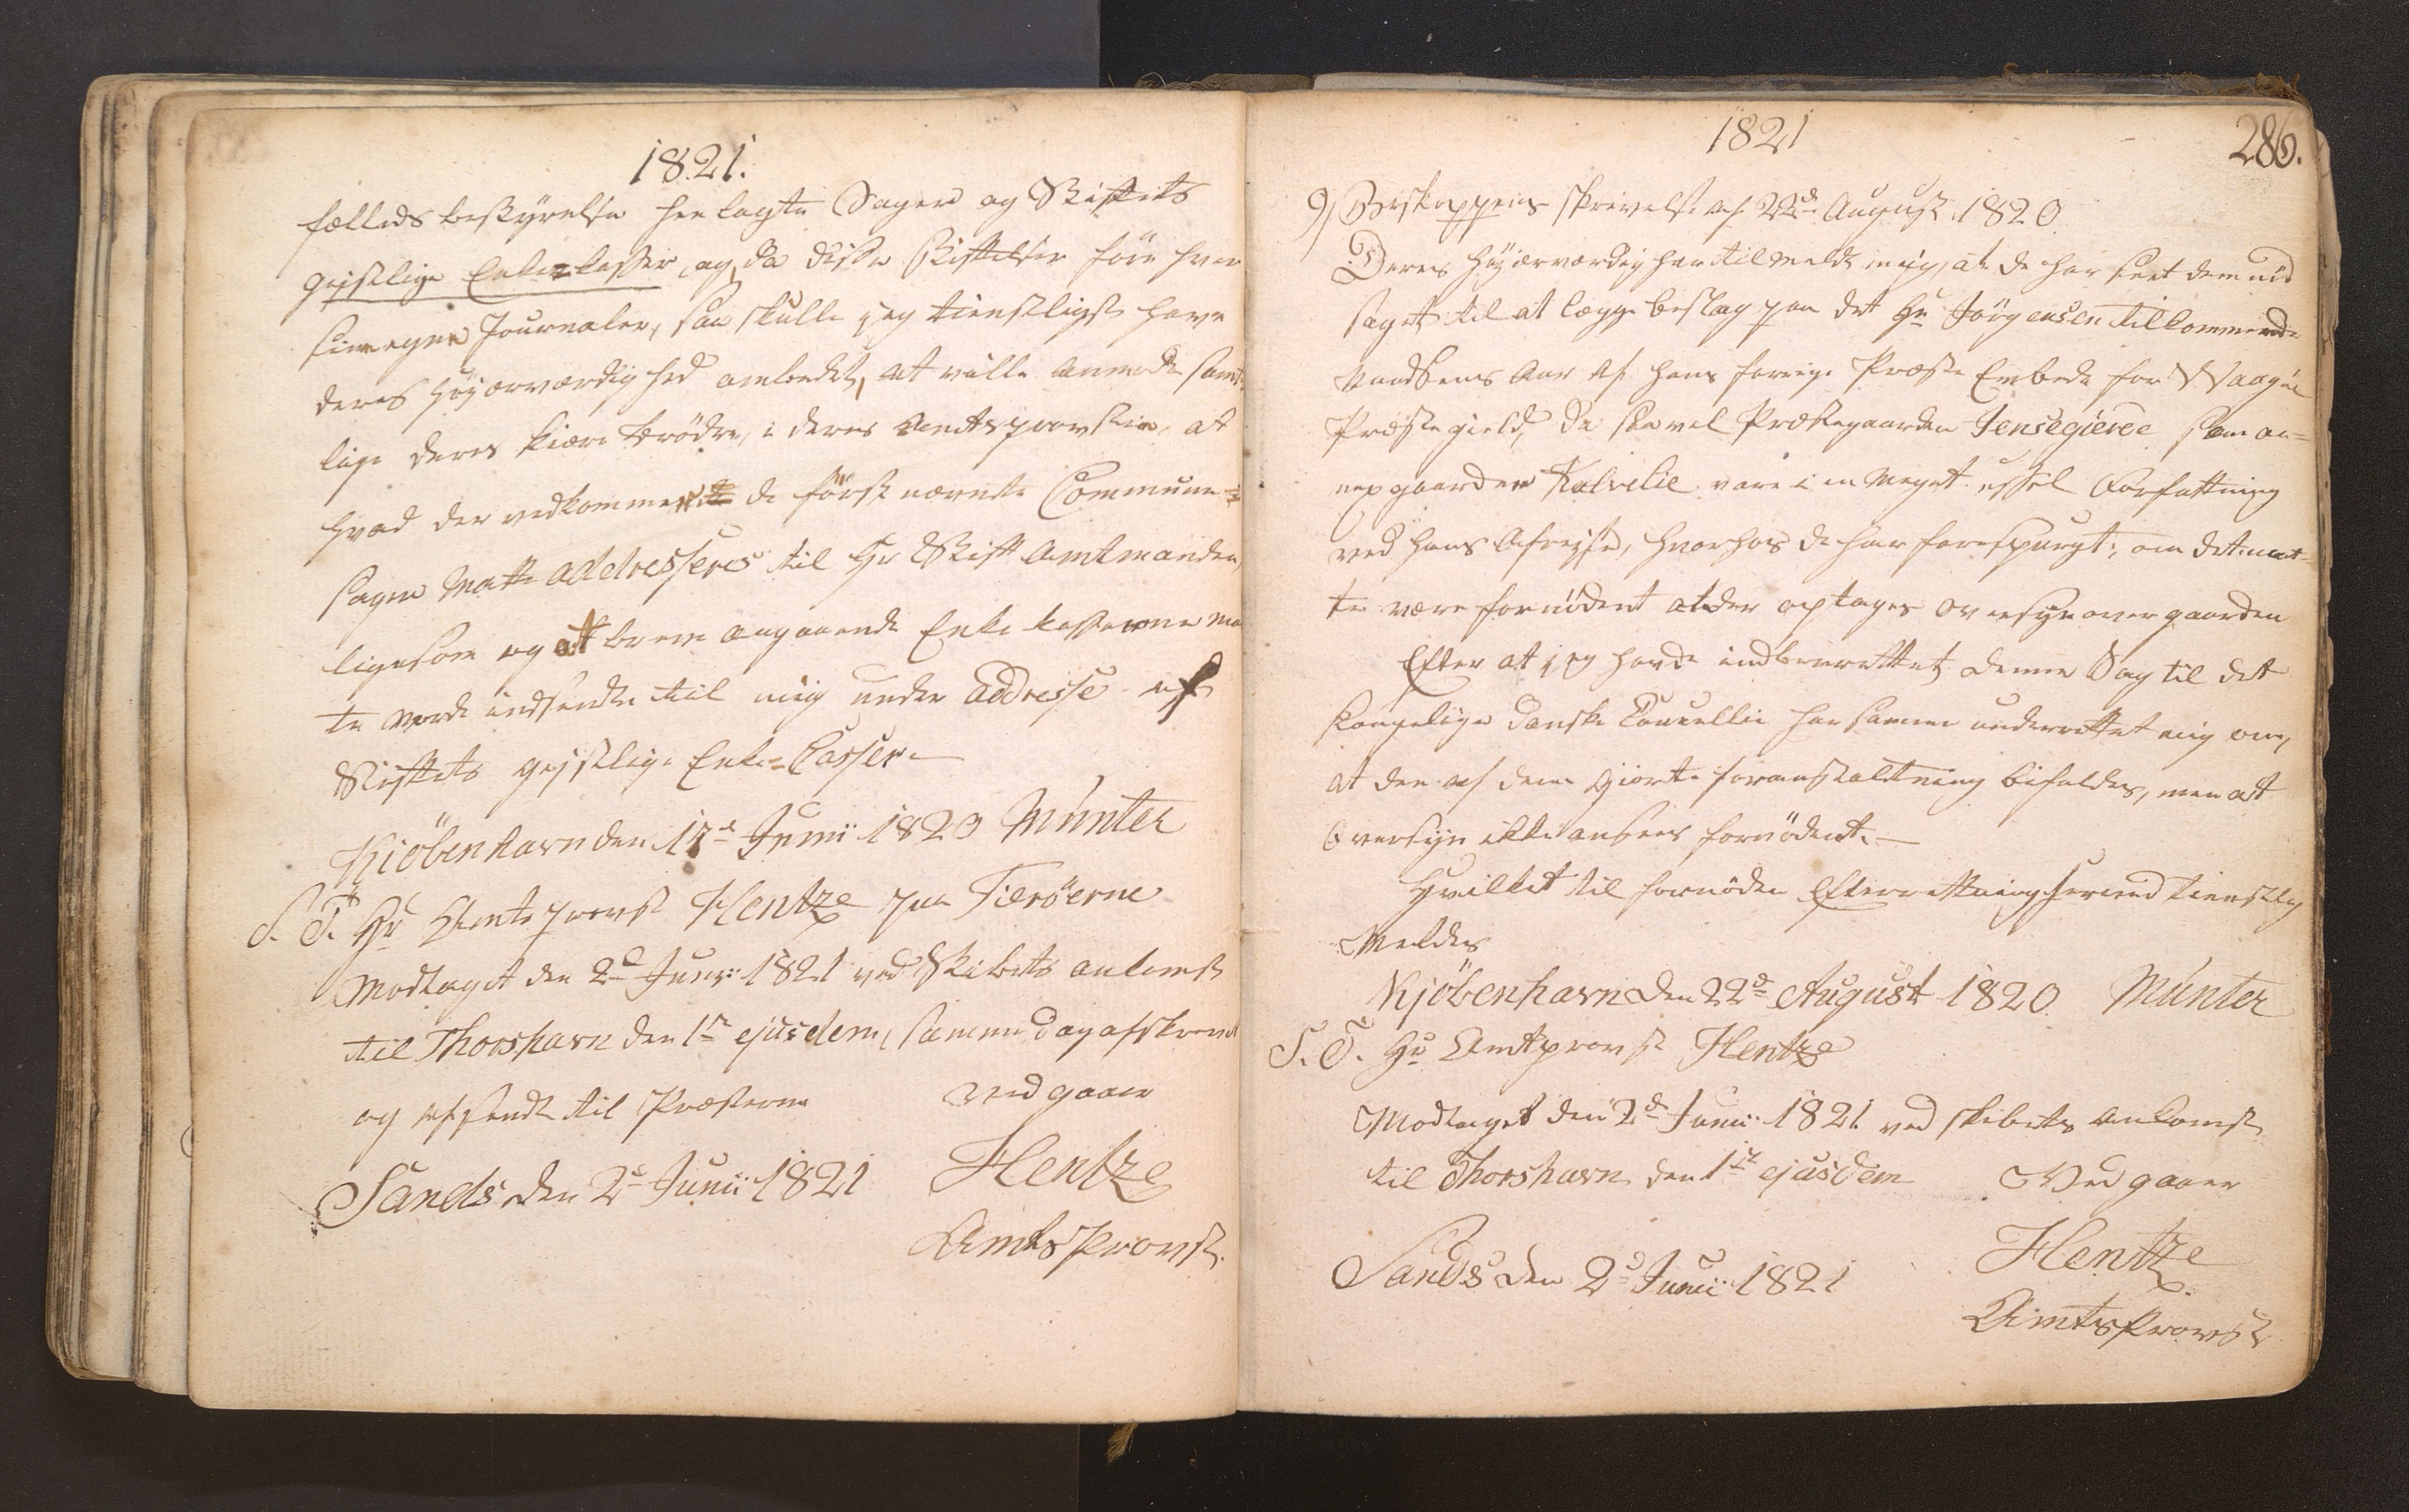 1821.
fælleds bestyrelse henlagte Sager og Stiftets
gejstlige Enkekasser, og da disse Stiftelser före hver
sine egne Journaler, saa skulle jeg tienstligst have
deres Höjærværdighed anmodet, at ville anmode samt
lige deres kiære brödre, i deres Amtsprovstie, at
hvad der vedkommer de först nævnte Commune=
sager maatte addresseres til Hr Stift Amtmanden,
ligesom og at breve angaaende Enke kasserne maa
te vorde indsendte til mig under addresse af
Stiftets gejstlige Enke=Casser.
Kiöbenhavn den 17de Junii 1820 Münter
S. T. Hr Amtsprovst Hentze paa Færöerne
Modtaget den 2d Junii 1821 ved Skibets ankomst
til Thorshavn den 1te ejusdem, samme Dag afskrevet
og afsendt til Præsterne
Vedgaaer
Sands den 2d Junii 1821
Hentze
Amtsprovst.
1821
286.
9) Biskoppens skrivelse af 22de August 1820
Deres Höjærværdig har tilmeldt mig, at de har seet dem nöd
saget til at lægge beslag paa det Hr Jörgensen tilkommende
Naadsens Aar af hans forrige Præste Embede for Waagöe
Præstegield, da saavel Præstegaarden Jensegierde som an=
nexgaarden Kalvelie vare i en meget ussel Forfattning
ved hans Afrejse, hvorhos de har forespurgt, om det maat=
te være fornödent at der optages Oversyn over gaarden
Efter at jeg havde indberettet denne Sag til det
kongelige danske Cancellie har samme underrettet mig om,
at den af dem giorte foranstaltning bifaldes, men at
Oversyn ikke ansees fornödent.
Hvilket til fornöden Efterretning herved tienstlig
Meldes
Kjöbenhavn den 22de August 1820 Münter
S. T. Hr Amtprovst Hentze
Modtaget den 2d Junii 1821 ved skibets ankomst
til Thorshavn den 1te ejusdem
Vedgaaer
Sands den 2d Junii 1821
Hentze
Amtsprovst